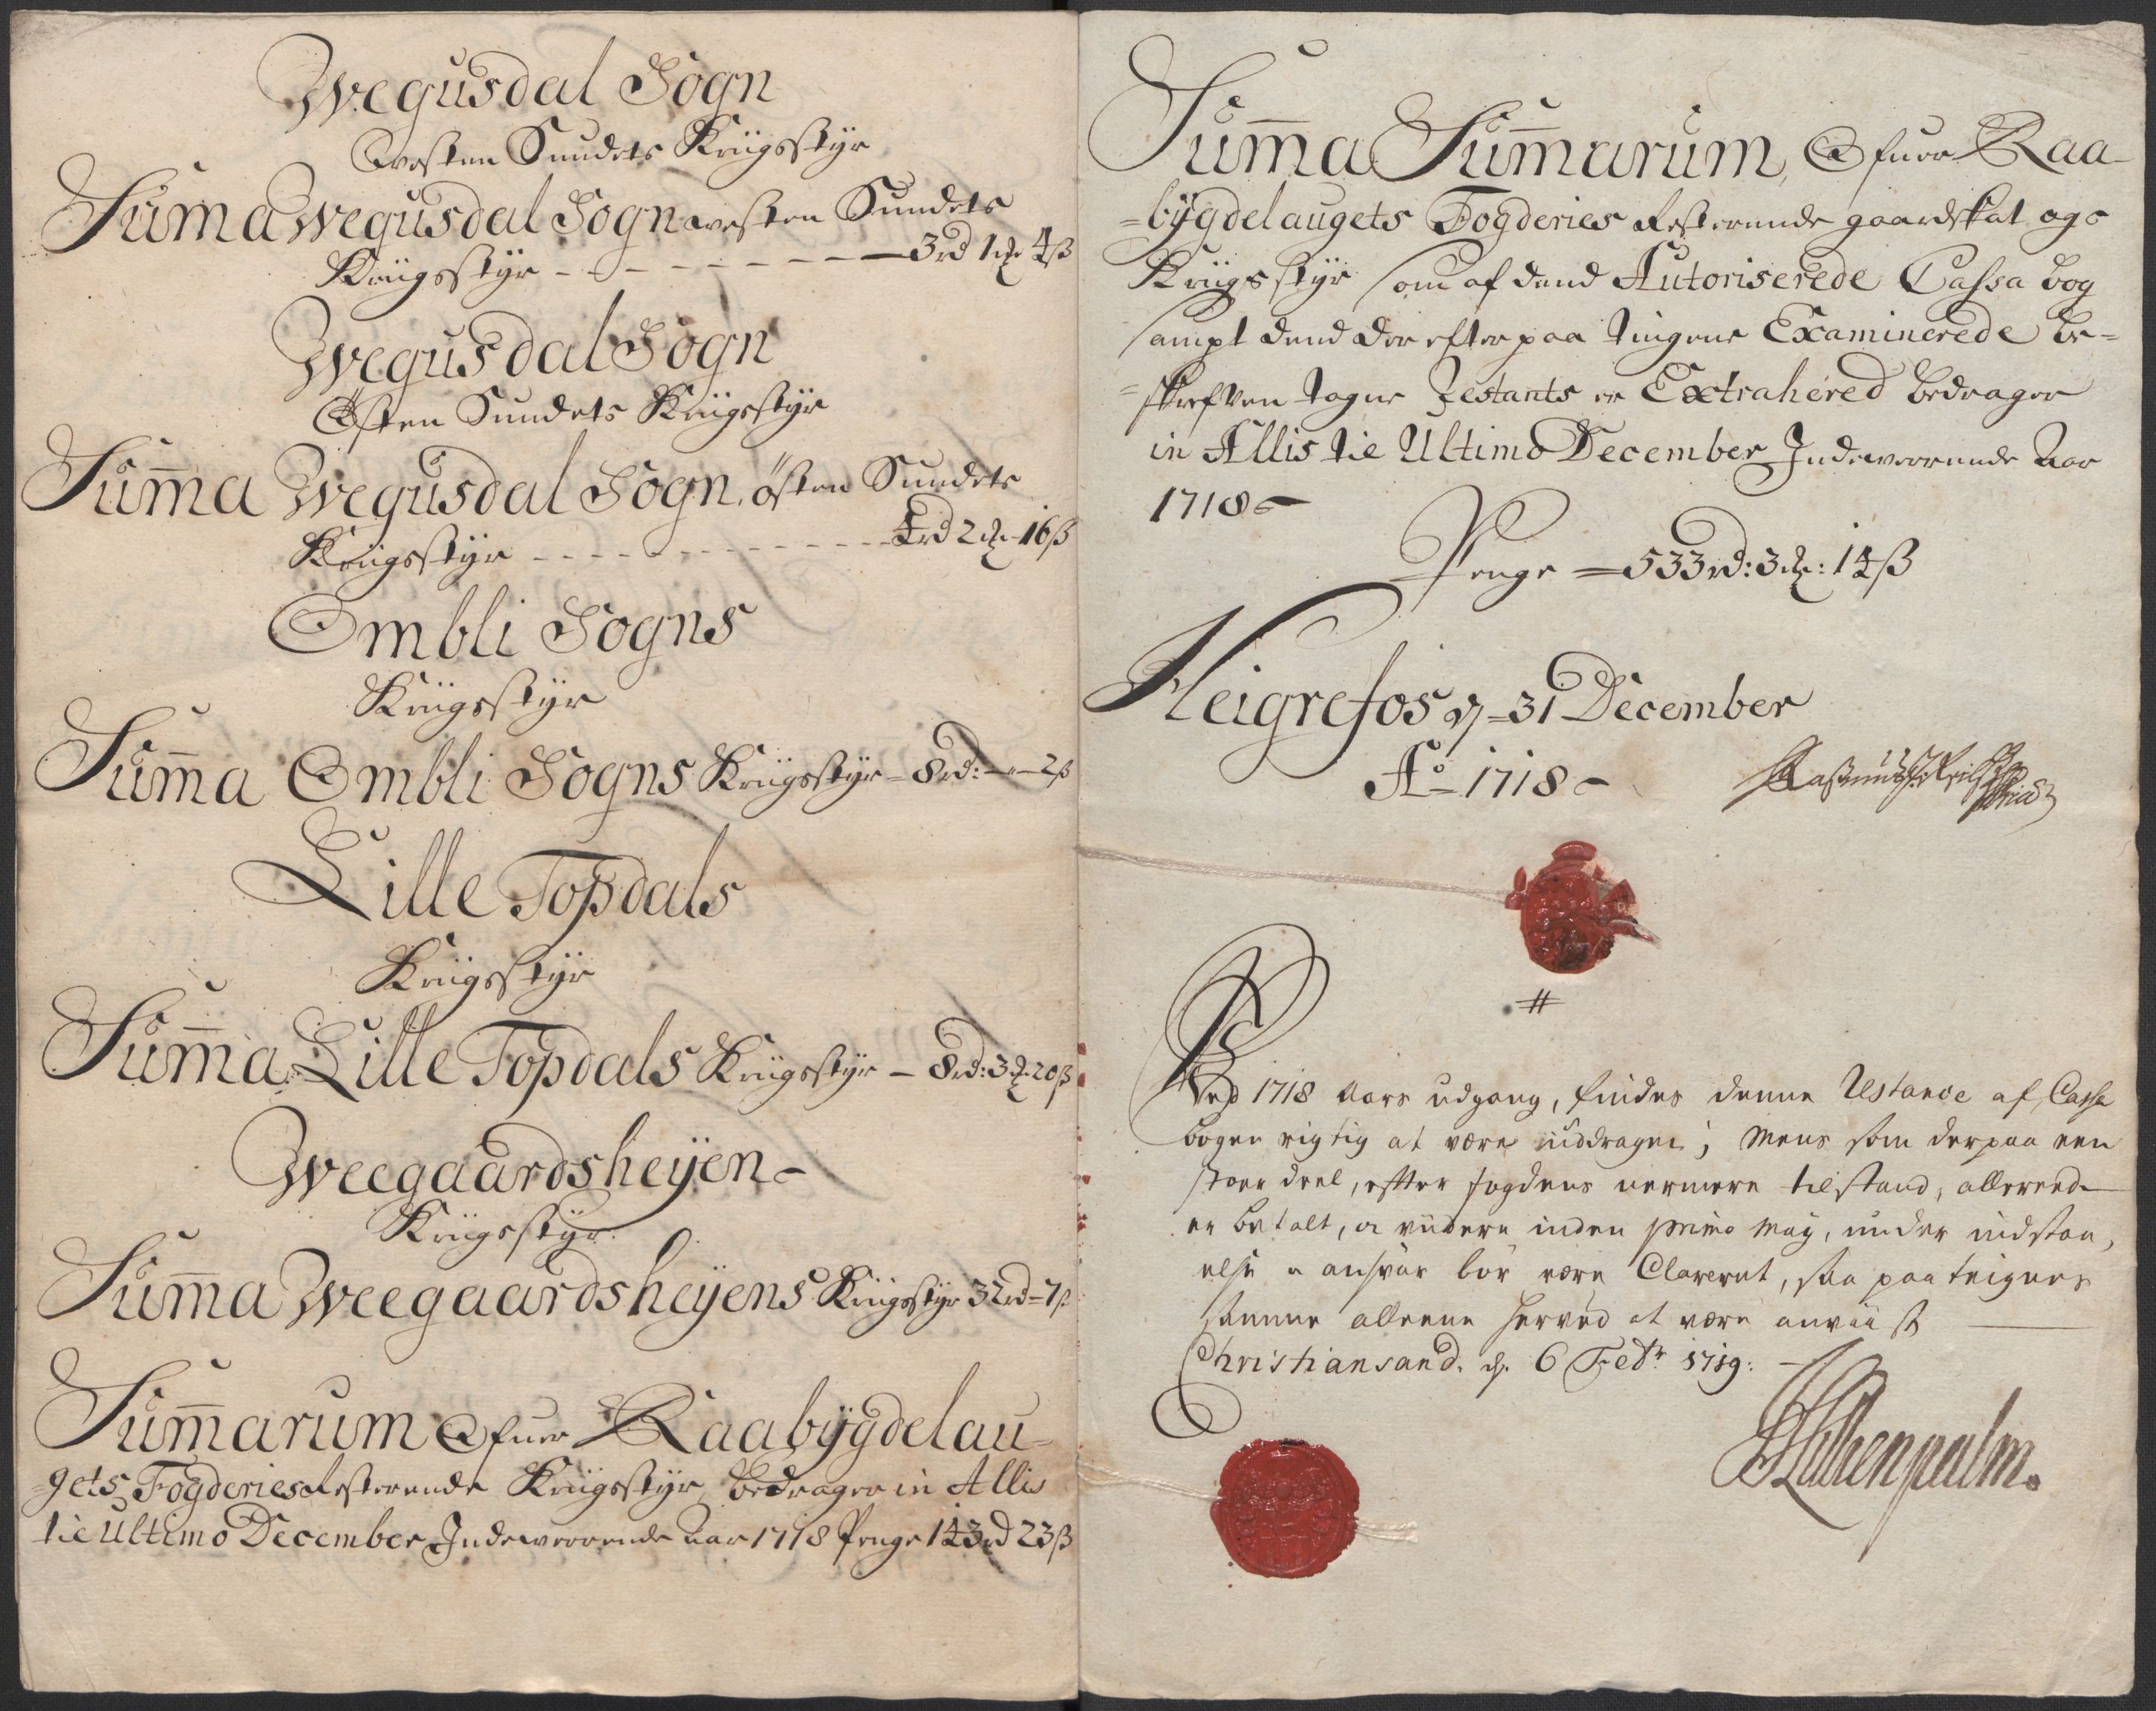 Wegusdal Sogn
Westen Sundets Kriigsstÿr
Sum̄a Wegusdal Sogn westen Sundets
Kriigsstÿr - - - - - - - - 3rd 1 4ß
Wegusdal Sogn
Østen Sundets Kriigsstÿr
Sum̄a Wegusdal Sogn, østen Sundets
Kriigsstÿr - - - - - - - - 4rd 2 16ß
Ombli Sogns
Kriigsstÿr
Sum̄a Ombli Sogns Kriigsstÿr - 8rd: - " - 2ß
Lille Topdals
Kriigsstÿr
Sum̄a Lille Topdals Kriigsstÿr - 8rd: 3 20ß
Weegaardsheÿen -
Kriigsstÿr
Sum̄a Weegaardsheÿens Kriigsstÿr 32rd - 7ß
Sum̄arum Ofuer Raabÿgdelau-
=gets Fogderies Resterende Kriigsstÿr, bedrager in Allis
til Ultimo December Indeværende Aar 1718 Penge 143rd 23ß
Sum̄a Sum̄arum, Ofuer Raa-
=bÿgdelaugets Fogderies Resterende gaardskat og
Kriigsstÿr som af dend Autoriserede Cassa bog
sampt dend der efter paa tingene Examinerede be=
=skrefven tagne Restants er Extrahered bedrager
in Allis til Ultimo December Indeværende Aar
1718
Penge = 533rd: 3: 14ß
Heigrefos d = 31 December
Ao 1718
#
Ved 1718 Aars udgang, findes denne Restance af Cassa
bogen rigtig at være uddragen; Mens som derpaa een
stoer deel, efter fogdens nermere tilstand, allereede
er betalt, og videre inden primo Maÿ, under indstaa,
else og ansvar bør være Clareret, saa paateignes
samme alleene herved at være anviist
Christiansand. d. 6 Febr 1719: